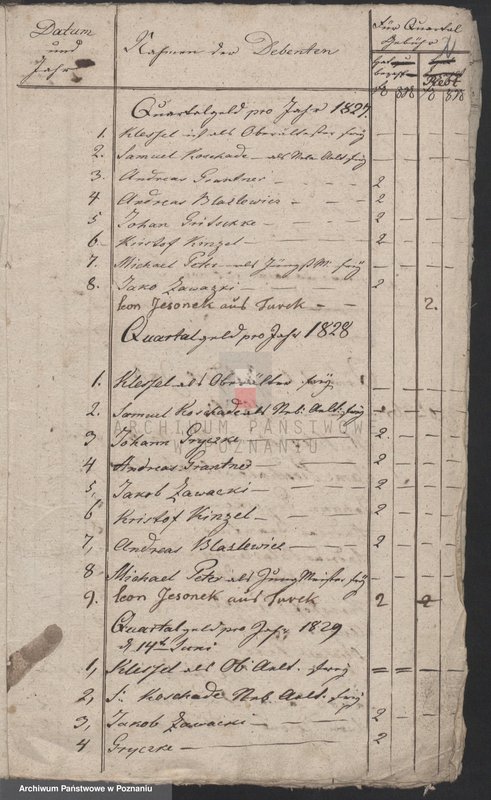 Datum
und
Jahr
Nahmen der Debenten
Für Quartal
Gebühr
Rest
Quartalgeld pro Jahr 1827.
1. Klessel ist als Oberältester frey — —
2. Samuel Koschade — als Neb. Aelt. frey — —
3. Andreas Grantner — — — 2 — —
4 Andreas Blaslewicz — — 2 — —
5 Johan Gritschke — — — 2 — —
6 Kristof Kinzel — — — 2 — —
7. Michael Peter — als Jüngst M. frey — — —
8. Jako Zawazki — — — 2 — —
Leon Jesonek aus Turek — — 2.
Quartalgeld pro Jahr 1828
1. Klessel als Oberälster frey — — —
2. Samuel Koschade als Neb. Aelt. frey — — —
3 Johann Gryczke — — 2. — —
4 Andreas Grantner — — 2 — —
5, Jakob Zawacki — — — 2 — —
6 Kristof Kinzel — — — 2 — —
7, Andreas Blaslewicz — — 2 — —
8 Michael Peter als Jung Meister frey — — —
9. Leon Jesonek aus Turek 2 2
Quartalgeld pro Jahr 1829
d. 14t Juni
1, Klessel als Ob. Aelt. frey = = =
2, S. Koschade Neb. Aelt. frey
3, Jakob Zawacki — — — 2
4 Gryczke — — — 2
ARCHIWUM PAŃSTWOWE
W POZNANIU
Archiwum Państwowe w Poznaniu